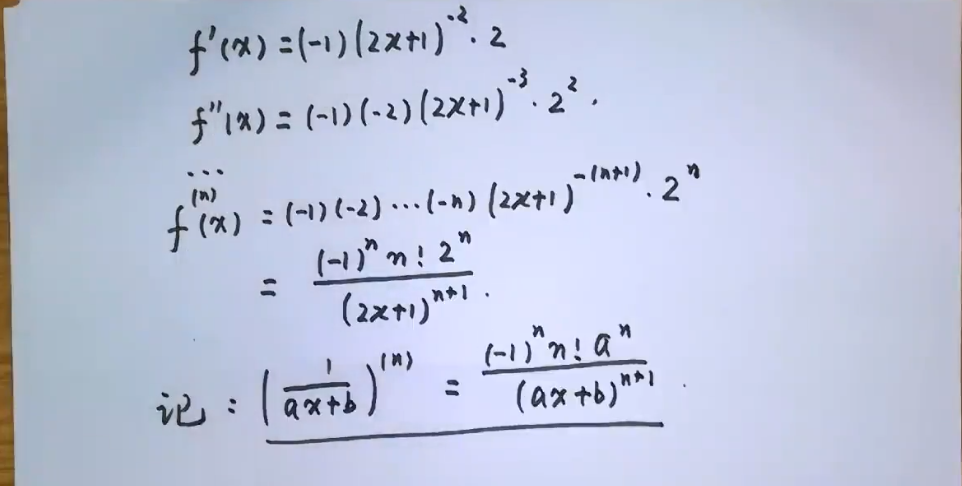 f'(x) = (-1)(2x+1)^{-2} · 2
f''(x) = (-1)(-2)(2x+1)^{-3} · 2^2 .
...
f^{(n)}(x) = (-1)(-2)···(-n)(2x+1)^{-(n+1)} · 2^n
= \frac{(-1)^n n! 2^n}{(2x+1)^{n+1}} .
记: (\frac{1}{ax+b})^{(n)} = \frac{(-1)^n n! a^n}{(ax+b)^{n+1}} .